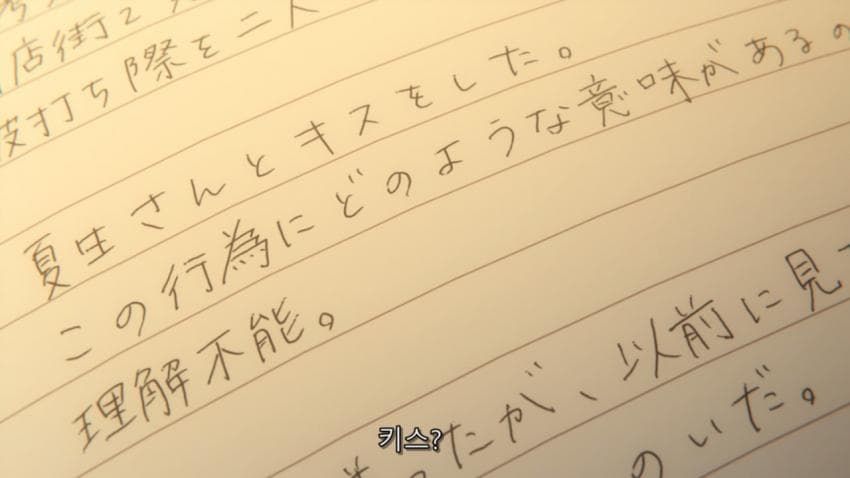 店街
打ち際を二人
夏生さんとキスをした。
この行為にどのような意味があるの
理解不能。
ったが、以前に見
のいだ。
키스?